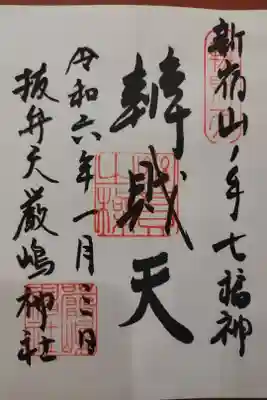 新宿山ノ手七福神
辨財天
令和六年一月三日
抜弁天厳嶋神社